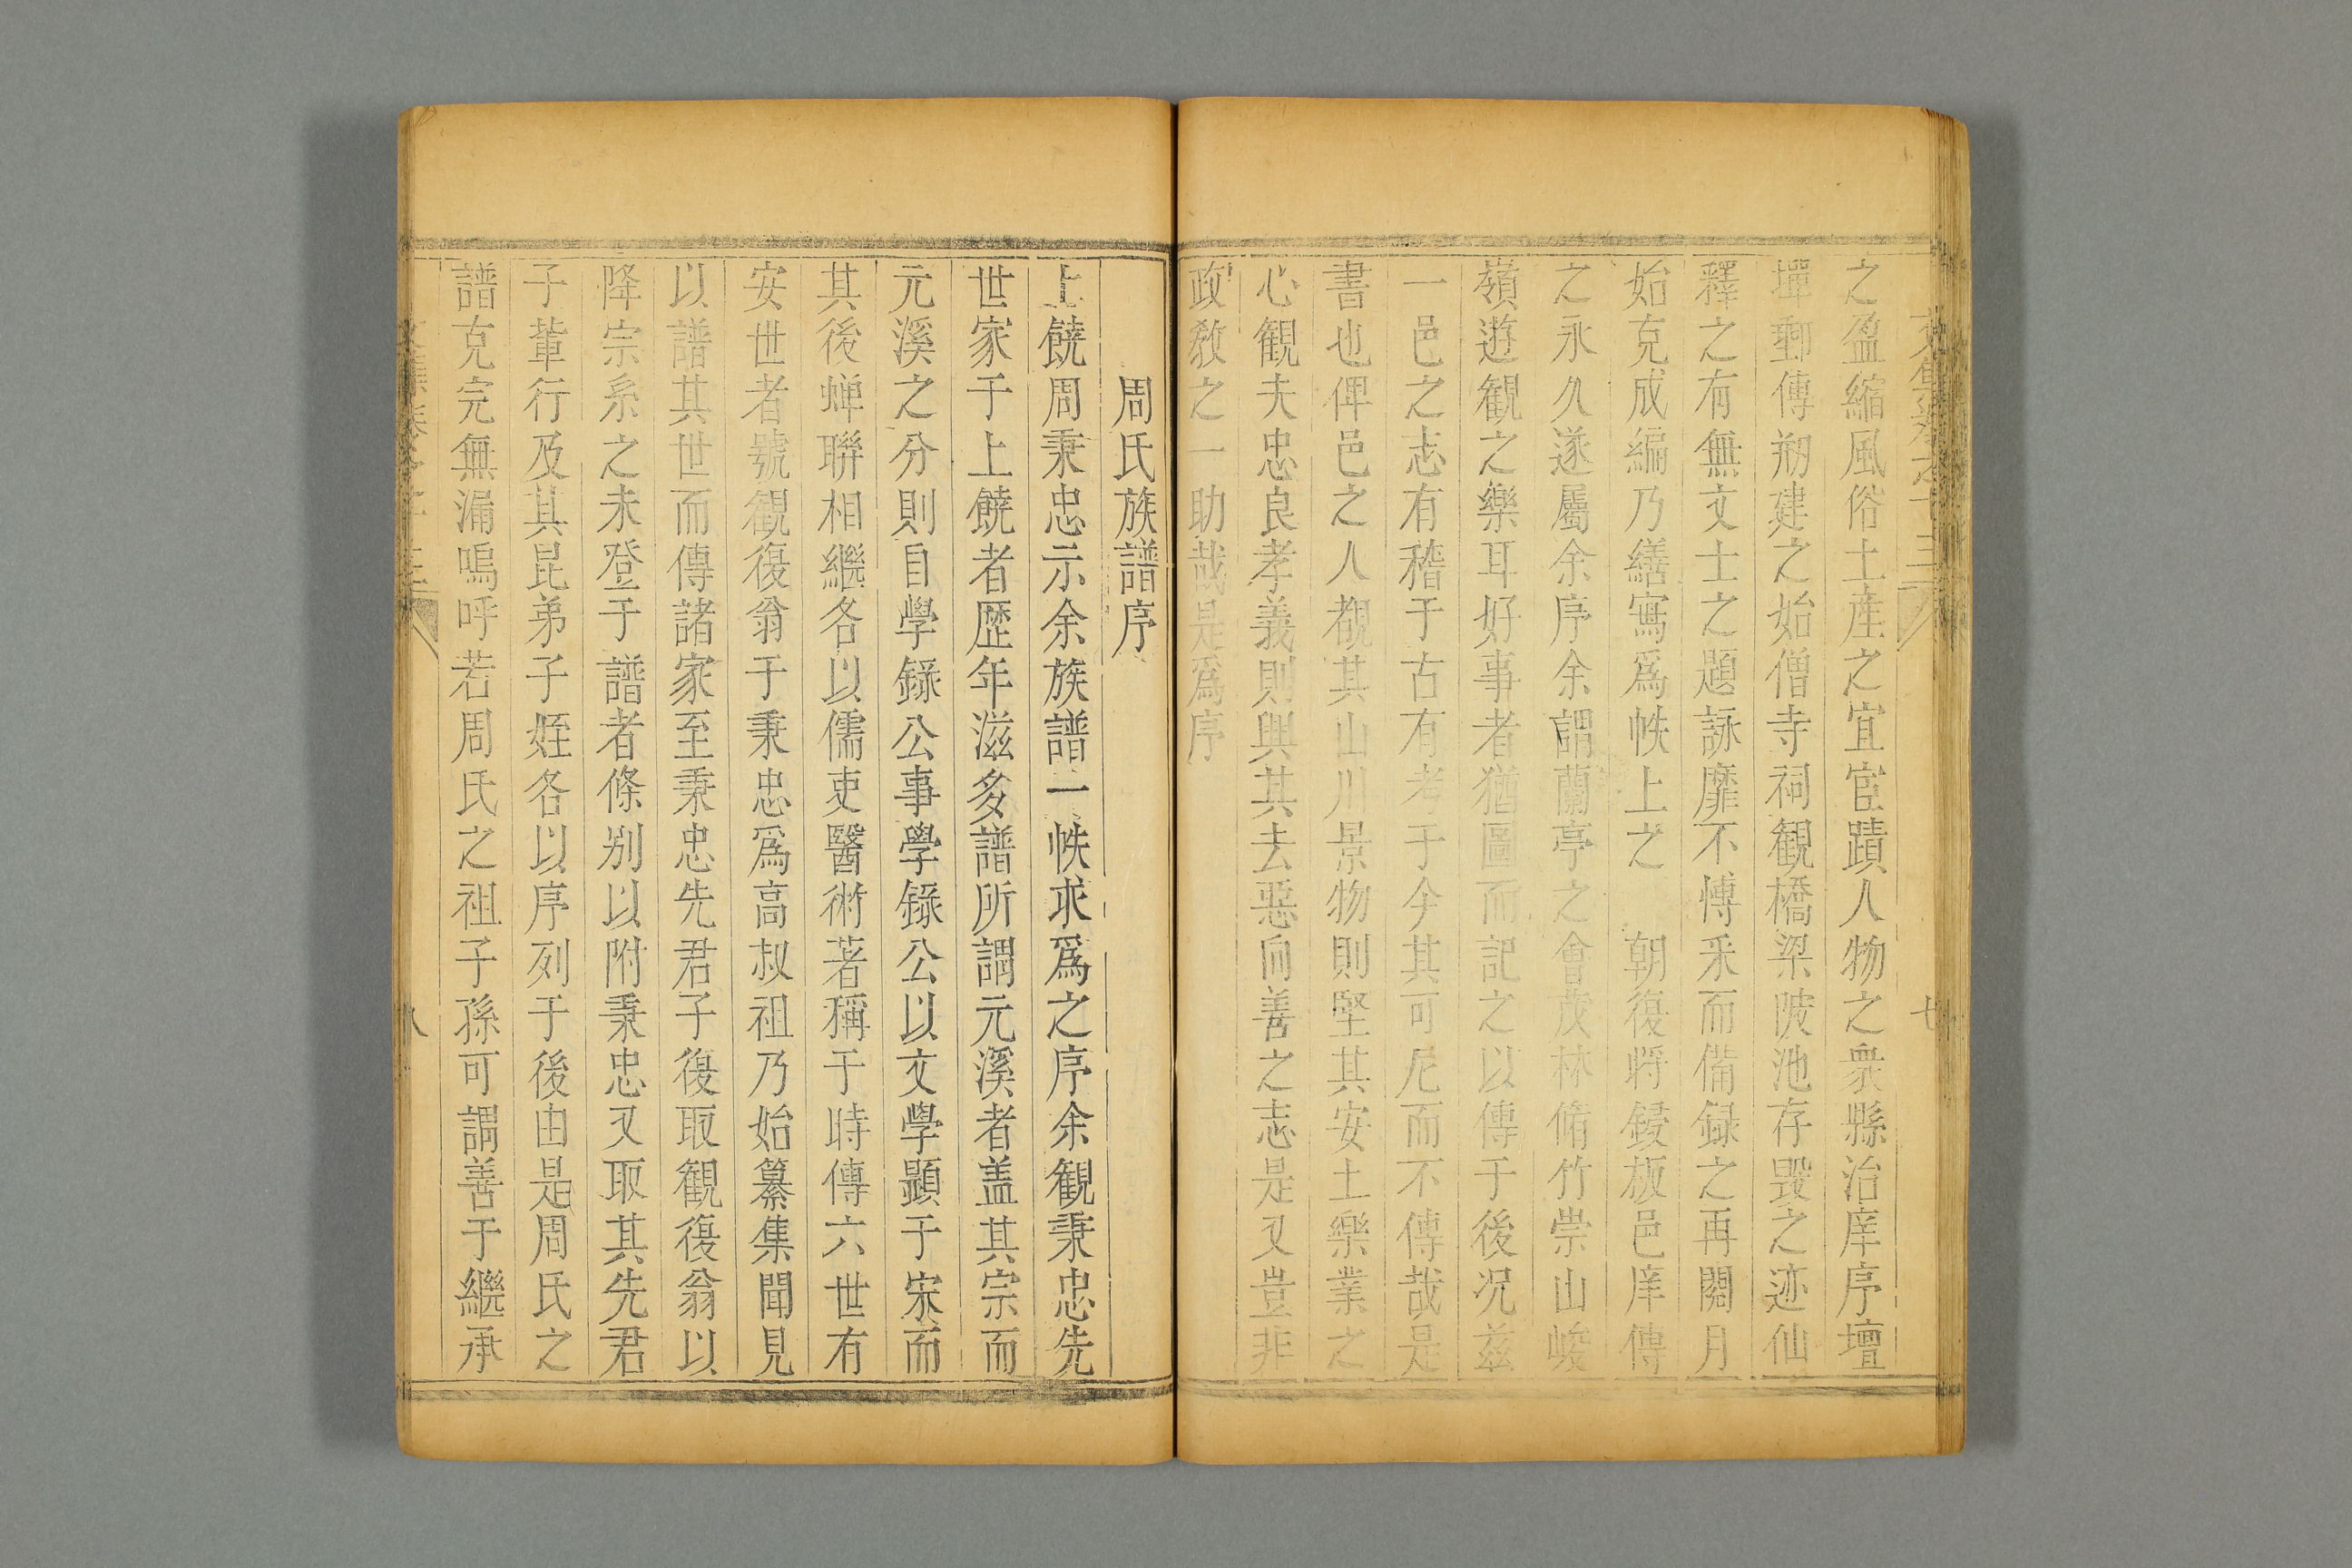 之盈縮風俗土產之宜宦蹟人物之衆縣治庠序壇
墠郵傳剏建之始僧寺祠觀橋梁陂池存毀之迹仙
釋之有無文士之題詠靡不愽釆而備録之再閱月
始克成編乃繕寫爲帙上之　朝復將鋟板邑庠傳
之永久遂屬余序余謂蘭亭之會茂林脩竹崇山峻
嶺遊觀之樂耳好事者猶圖而記之以傳于後况兹
一邑之志有稽于古有考于今其可尼而不傳哉是
書也俾邑之人覩其山川景物則堅其安土樂業之
心觀夫忠良孝義則興其去惡向善之志是又豈非
政敎之一助哉是爲序
周氏族譜序
上饒周秉忠示余族譜一帙求爲之序余觀秉忠先
世家于上饒者歷年滋多譜所謂元溪者盖其宗而
元溪之分則自學錄公事學錄公以文學顯于宋而
其後蝉聯相繼各以儒吏醫術著稱于時傳六世有
安世者號觀復翁于秉忠爲高叔祖乃始纂集聞見
以譜其世而傳諸家至秉忠先君子復取觀復翁以
降宗系之未登于譜者條别以附秉忠又取其先君
子輩行及其昆弟子姪各以序列于後由是周氏之
譜克完無漏嗚呼若周氏之祖子孫可謂善于繼承
八